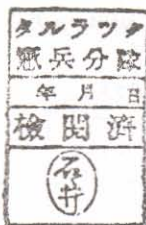 タルラツク
憲兵分隊
年 月 日
檢閲済
石井